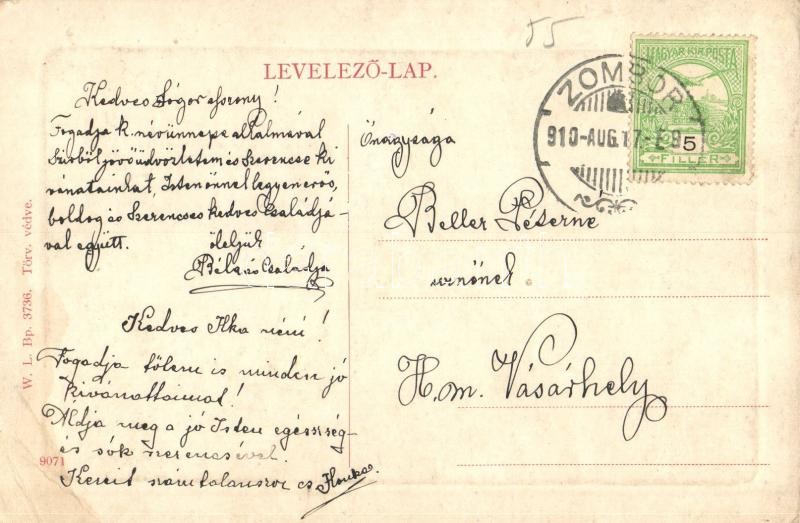 55
LEVELEZŐ-LAP.
MAGYAR KIR. POSTA
5
FILLÉR
ZOMBOR
910-AUG.17.
Kedves Sógorasszony!
Fogadja k. névünnepe alkalmával
Szivből jövő üdvözletem és Szerencse ki
vánatainkat, Isten önnel legyen erős,
boldog és Szerencses kedves Családjá-
val együtt.
öleljük
Béla és Családja
Kedves Ilka néni!
Fogadja tölem is minden jó
kivánattaimat!
Áldja meg a jó Isten egészség-
és sók szerencsével.
Kezeit számtalanszor cs Ilonka
Önagysága
Beller Péterné
urnőnek
H.m. Vásárhely
W. L. Bp. 3736. Törv. védve.
9071